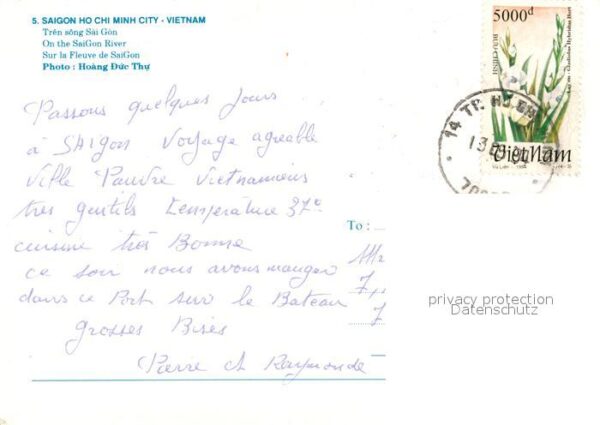 5. SAIGON HO CHI MINH CITY - VIETNAM
Trên sông Sài Gòn
On the SaiGon River
Sur la Fleuve de SaiGon
Photo : Hoàng Đức Thự
5000đ
BƯU CHÍNH
Gladiolus Hybridus Hort
14 TP. HỒ CH
Việt Nam
1994
Passons quelques Jours
à SAIgon Voyage agreable
Ville Pauvre Vietnamiens
très gentils Température 37°
cuisine très Bonne
ce soir nous avons manger
dans ce Port sur le Bateau
grosses Bises
Pierre et Raymonde
To :
7
7
privacy protection
Datenschutz